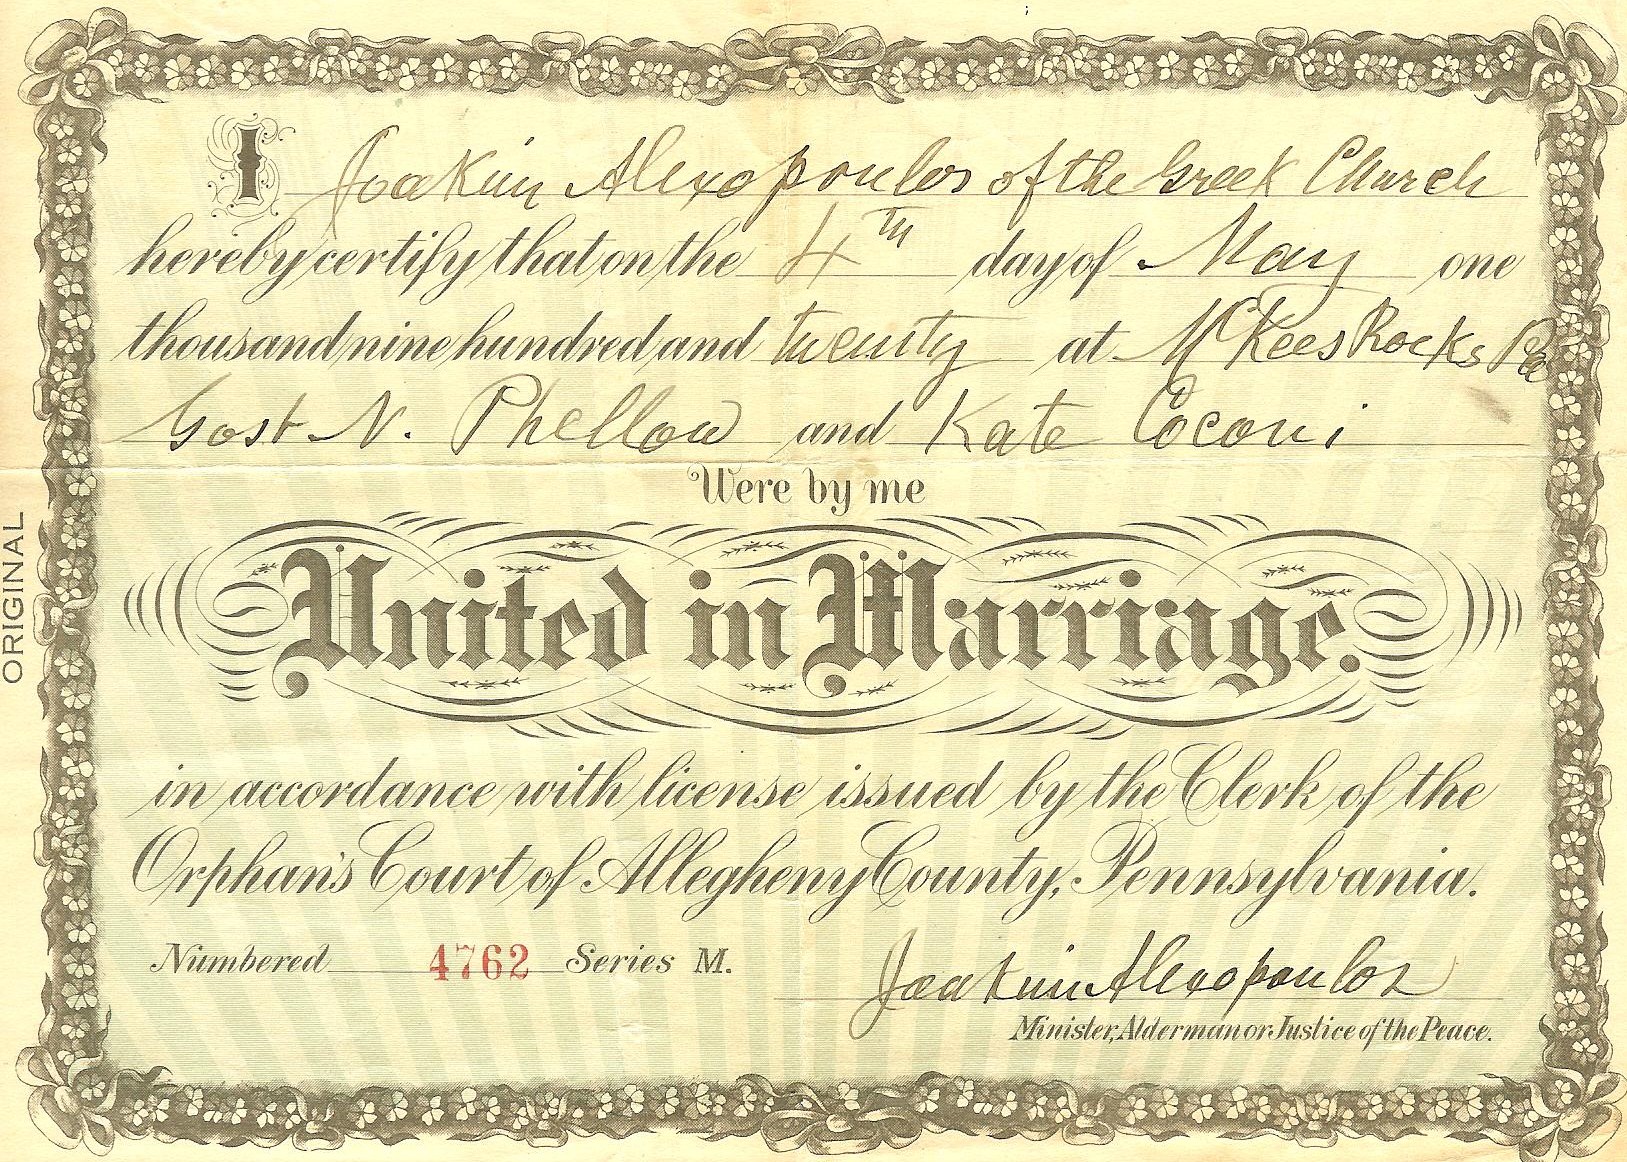 I Joakim Alexopoulos of the Greek Church
hereby certify that on the 4TH day of May one
thousand nine hundred and twenty at McKees Rocks Pa
Gost N. Phellow and Kate Coconi
Were by me
United in Marriage.
in accordance with license issued by the Clerk of the
Orphan's Court of Allegheny County, Pennsylvania.
Numbered 4762 Series M.
Joakim Alexopoulos
Minister, Alderman or Justice of the Peace.
ORIGINAL